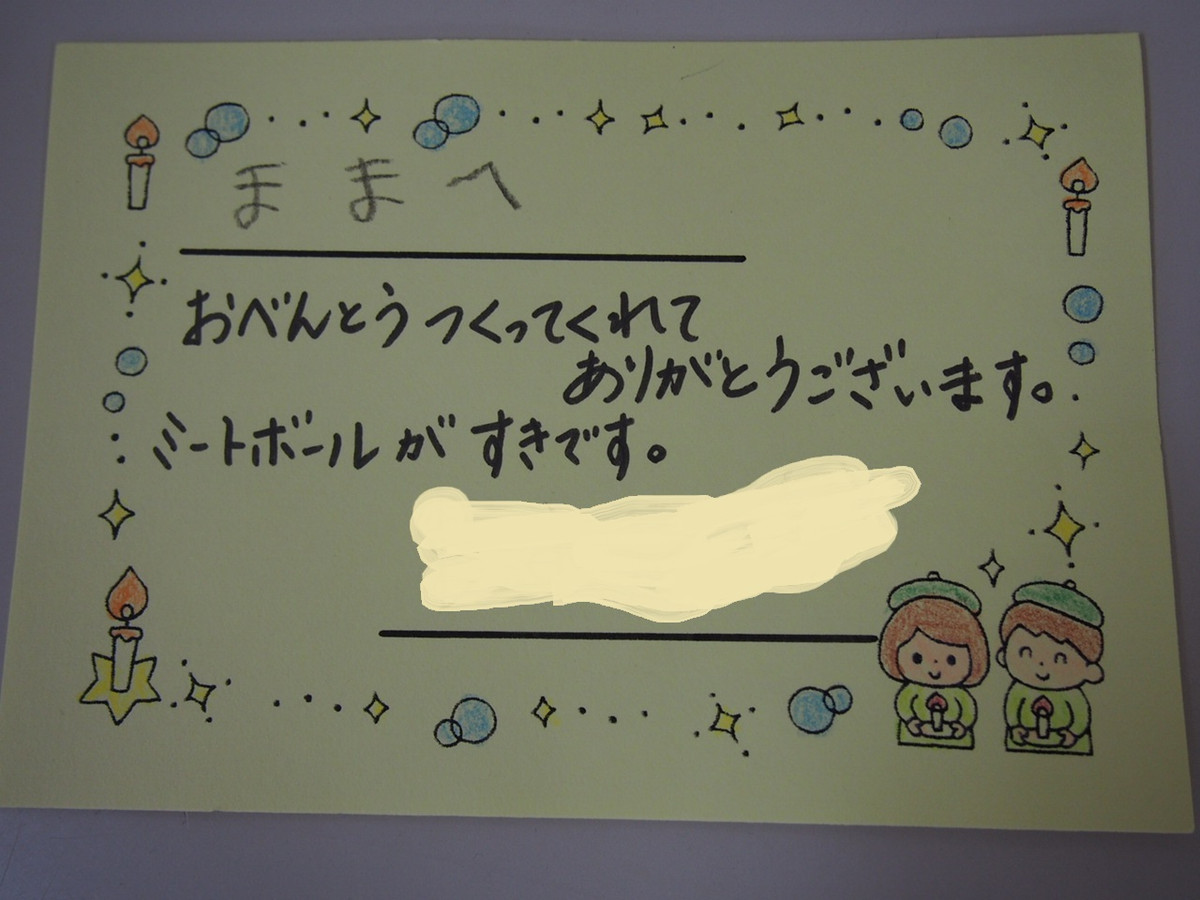 ままへ
おべんとうつくってくれて
ありがとうございます。
ミートボールがすきです。